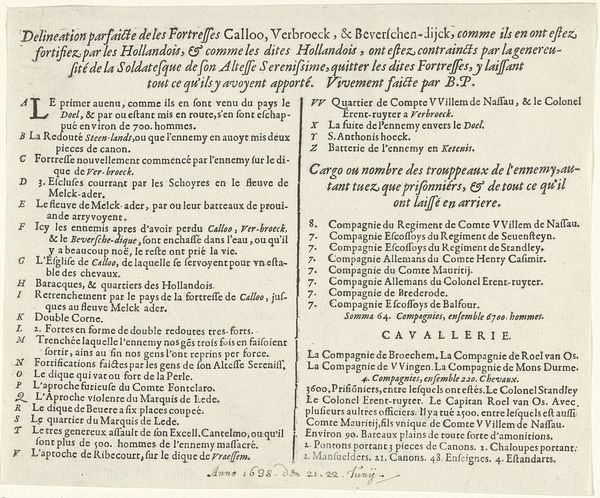 Delineation parfaicte de les Fortresses Calloo, Verbroeck, & Beverschen-dijck, comme ils en ont estez
fortifiez par les Hollandois, & comme les dites Hollandois, ont estez contraincts par la genereu-
sité de la Soldatesque de son Altesse Serenissime, quitter les dites Fortresses, y laissant
tout ce qu'ils y avoyent apporté. Vivement faicte par B.P.
A LE primer auenu, comme ils en sont venu du pays le
Doel, & par ou estant mis en route, s'en sont eschap-
pué environ de 700. hommes.
B La Redouté Steen-landt, ou que l'ennemy en auoyt mis deux
pieces de canon.
C Fortresse nouvellement commencé par l'ennemy sur le di-
que de Ver-broeck.
D 3. Escluses courrant par les Schoyres en le fleuve de
Melck-ader.
E Le fleuve de Melck-ader, par ou leur batteaux de proui-
ande arryvoyent.
F Icy les ennemis apres d'avoir perdu Calloo, Ver-broeck,
& le Beversche-dique, sont enchassé dans l'eau, ou qu'il
y a beaucoup noé, le reste ont prié la vie.
G L'Esglise de Calloo, de laquelle se servoyent pour vn esta-
ble des chevaux.
H Baracques, & quartiers des Hollandois.
I Retrenchement par le pays de la fortresse de Calloo, jus-
ques au fleuve Melck ader.
K Double Corne.
L 2. Fortes en forme de double redoutes tres-forts.
M Trenchée laquelle l'ennemy nos gēs trois fois en faisoient
sortir, ains au fin nos gens l'ont reprins per force.
N Fortifications faictes par les gens de son Altesse Sereniss.
O Le dique qui vat ou fort de la Perle.
P L'aproche furieuse du Comte Fonclaro.
Q L'Aproche violente du Marquis de Lede.
R Le dique de Beuere a six places coupeé.
S Le quartier du Marquis de Lede.
T Le tres generoux assault de son Excell. Cantelmo, ou qu'il
sont plus de 500. hommes de l'ennemy massacré.
V L'aproche de Ribecourt, sur le dique de Vraessem.
VV Quartier de Compte VVillem de Nassau, & le Colonel
Erent-ruyter a Verbroeck.
X La fuite de l'ennemy envers le Doel.
Y S. Anthonis hoeck.
Z Batterie de l'ennemy en Ketenis.
Cargo ou nombre des trouppeaux de l'ennemy, au-
tant tuez, que prisonniérs, & de tout ce qu'il
ont laissé en arriere.
8. Compagnie du Regiment de Comte VVillem de Nassau.
7. Compagnie Escossoys du Regiment de Seuensteyn.
7. Compagnie Escossoys du Regiment de Standley.
7. Compagnie Allemans du Comte Henry Casimir.
7. Compagnie du Comte Mauritij.
7. Compagnie Allemans du Colonel Erent-ruyter.
7. Compagnie de Brederode.
7. Compagnie Escossoys de Balfour.
Somma 64. Compagnies, ensemble 6700. hommes.
CAVALLERIE.
La Compagnie de Broechem. La Compagnie de Roel van Os.
La Compagnie de VVingen. La Compagnie de Mons Durme.
4. Compagnies, ensemble 220. Chevaux.
3600, Prisiōniers, entre lesquels ont estés. Le Colonel Standley
Le Colonel Erent-ruyter. Le Capitan Roel van Os. Avec
plusieurs aultres officiers. Il y a tué 2500. entre lesquels est aussi
Comte Mauritij, fils vnique de Comte VVillem de Nassau.
Environ 90. Bateaux plains de toute sorte d'amonitions.
2. Pontons portant 3 pieces de Canons. 2. Chaloupes portant
2. Mansuelders. 21. Canons. 48. Enseignes. 4. Estandarts.
Anno 1638. den 21. 22 Junij